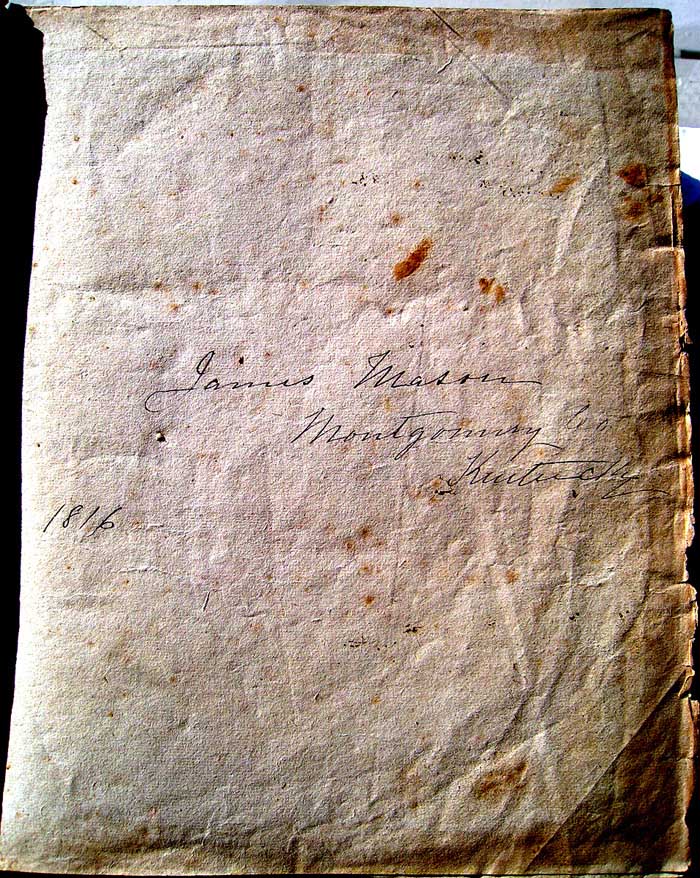 James Mason
Montgomery Co
Kentucky
1816